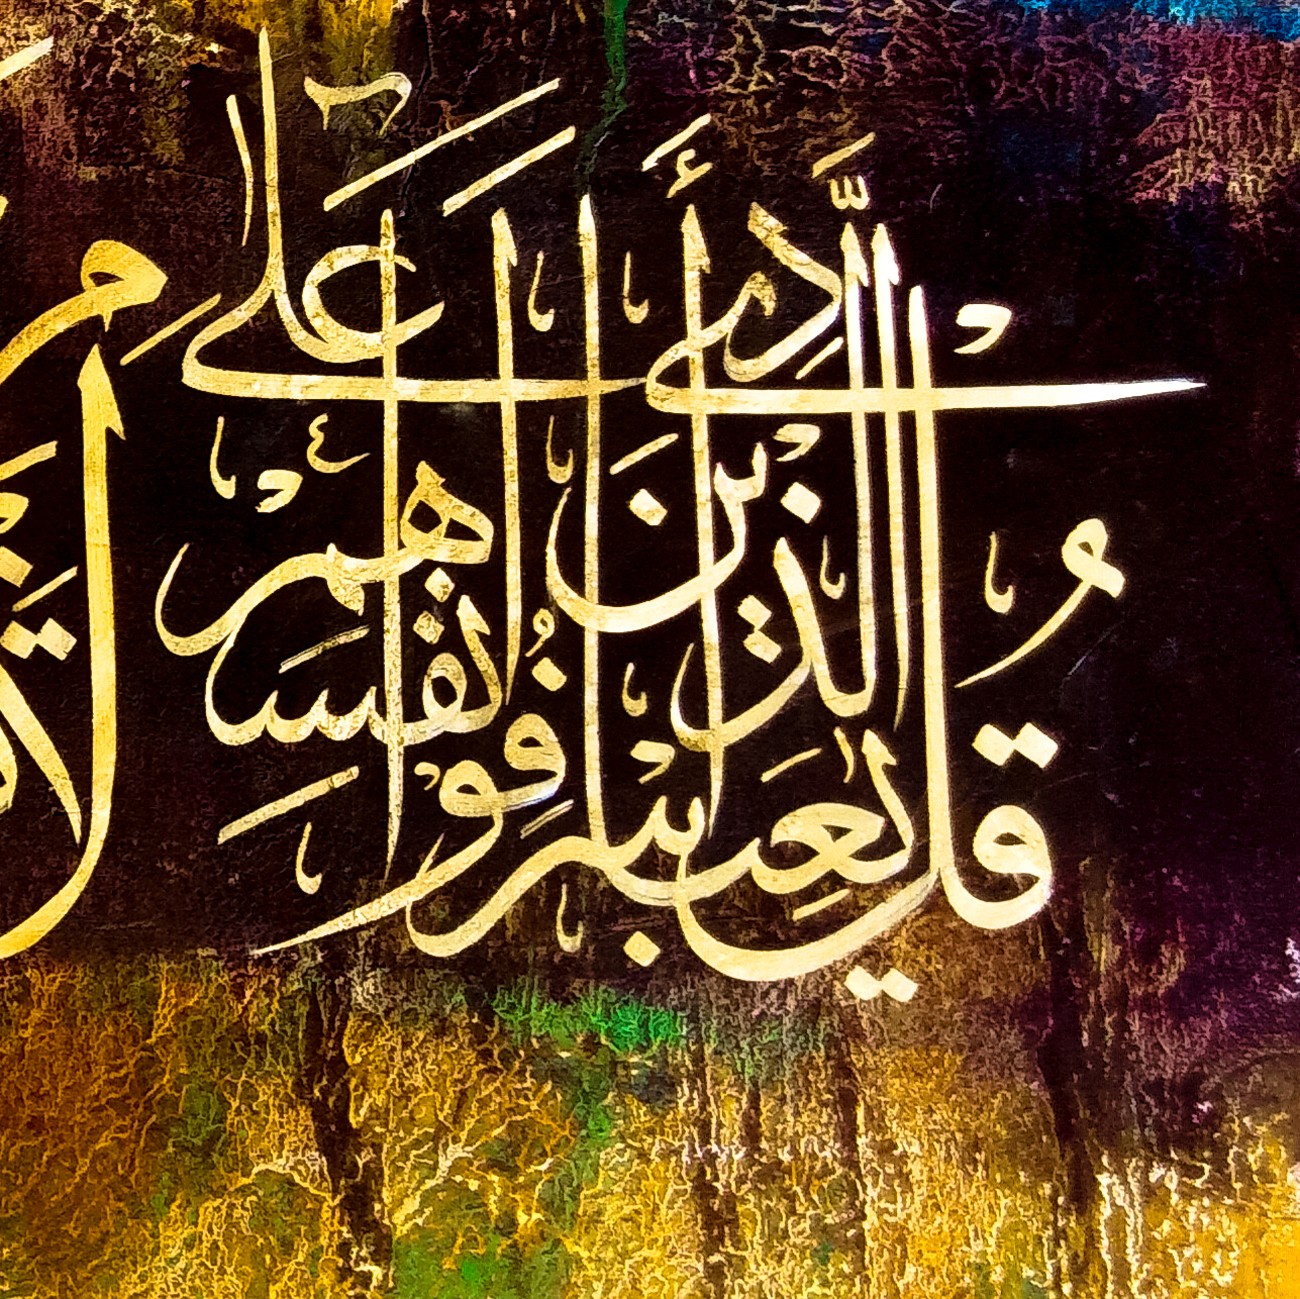 قُلْ يَعِبَادِىَ الَّذِينَ أَسْرَفُوا عَلَى أَنفُسِهِمْ لَا